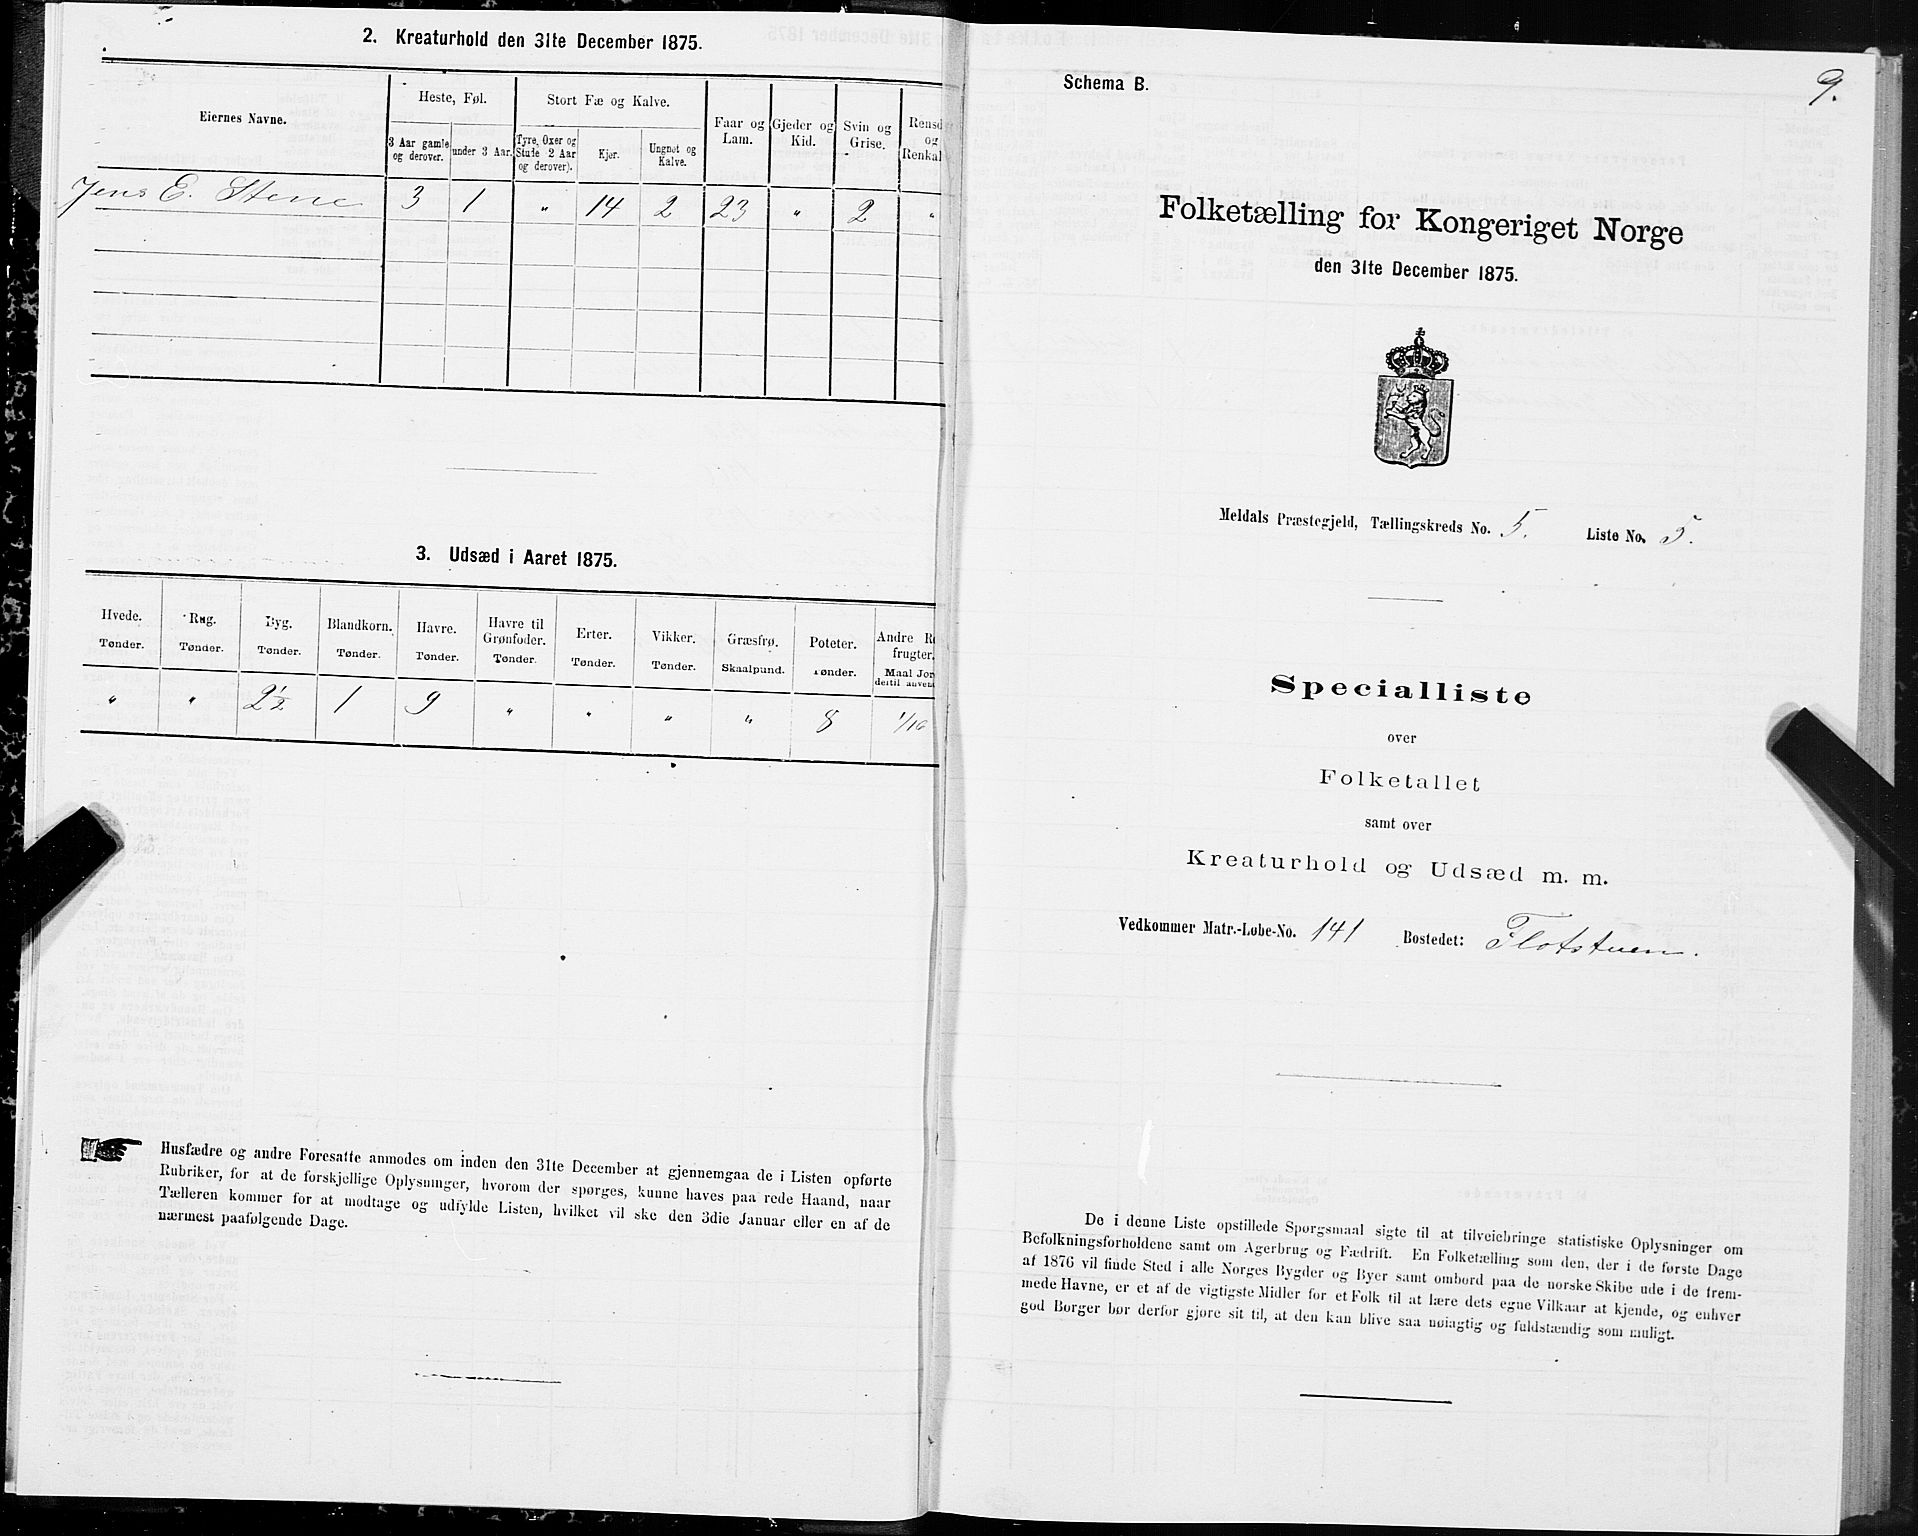 2. Kreaturhold den 31te December 1875.
Eiernes Navne.
Heste, Føl.
Stort Fæ og Kalve.
Faar og Lam.
Gjeder og Kid.
Svin og Grise.
Rensd
og
Renkal
3 Aar gamle og derover.
under 3 Aar.
Tyre, Oxer og Stude 2 Aar og derover).
Kjør.
Ungnøt og Kalve.
Jens E. Stene 3 1 „ 14 2 23 „ 2 „
3. Udsæd i Aaret 1875.
Hvede. Rug. Byg. Blandkorn. Havre. Havre til Grønfoder. Erter. Vikker. Græsfrø. Poteter. Andre R
frugter.
Tønder. Tønder. Tønder. Tønder. Tønder. Tønder. Tønder. Tønder. Skaalpund. Tønder. Maal Jor
dertil anvend
„ „ 2½ 1 9 „ „ „ „ 8 1/16
Husfædre og andre Foresatte anmodes om inden den 31te December at gjennemgaa de i Listen opførte
Rubriker, for at de forskjellige Oplysninger, hvorom der spørges, kunne haves paa rede Haand, naar
Tælleren kommer for at modtage og udfylde Listen, hvilket vil ske den 3die Januar eller en af de
nærmest paafølgende Dage.
Schema B.
9.
Folketælling for Kongeriget Norge
den 31te December 1875.
Meldals Præstegjeld, Tællingskreds No. 5. Liste No. 5.
Specialliste
over
Folketallet
samt over
Kreaturhold og Udsæd m. m.
Vedkommer Matr.-Løbe-No. 141 Bostedet: Flotstuen.
De i denne Liste opstillede Spørgsmaal sigte til at tilveiebringe statistiske Oplysninger om
Befolkningsforholdene samt om Agerbrug og Fædrift. En Folketælling som den, der i de første Dage
af 1876 vil finde Sted i alle Norges Bygder og Byer samt ombord paa de norske Skibe ude i de frem-
mede Havne, er et af de vigtigste Midler for et Folk til at lære dets egne Vilkaar at kjende, og enhver
god Borger bør derfor gjøre sit til, at den kan blive saa nøiagtig og fuldstændig som muligt.